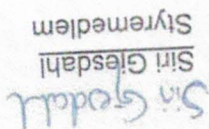 Siri Gjesdahl
Siri Gjesdahl
Styremedlem